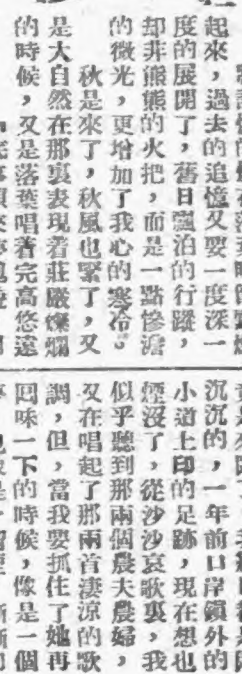 起來，過去的追憶又要一度深一
度的展開了，舊日飄泊的行蹤，
却非熊熊的火把，而是一點慘澹
的微光，更增加了我心的寒冷。
秋是來了，秋風也緊了，又
是大自然在那裏表現着莊嚴燦爛
的時候，又是落葉唱着完高悠遠
沉沉的，一年前口岸鎮外的
小道上印的足跡，現在想也
煙沒了，從沙沙哀歌裏，我
似乎聽到那兩個農夫農婦，
又在唱起了那兩首淒涼的歌
調，但，當我要抓住了她再
回味一下的時候，像是一個